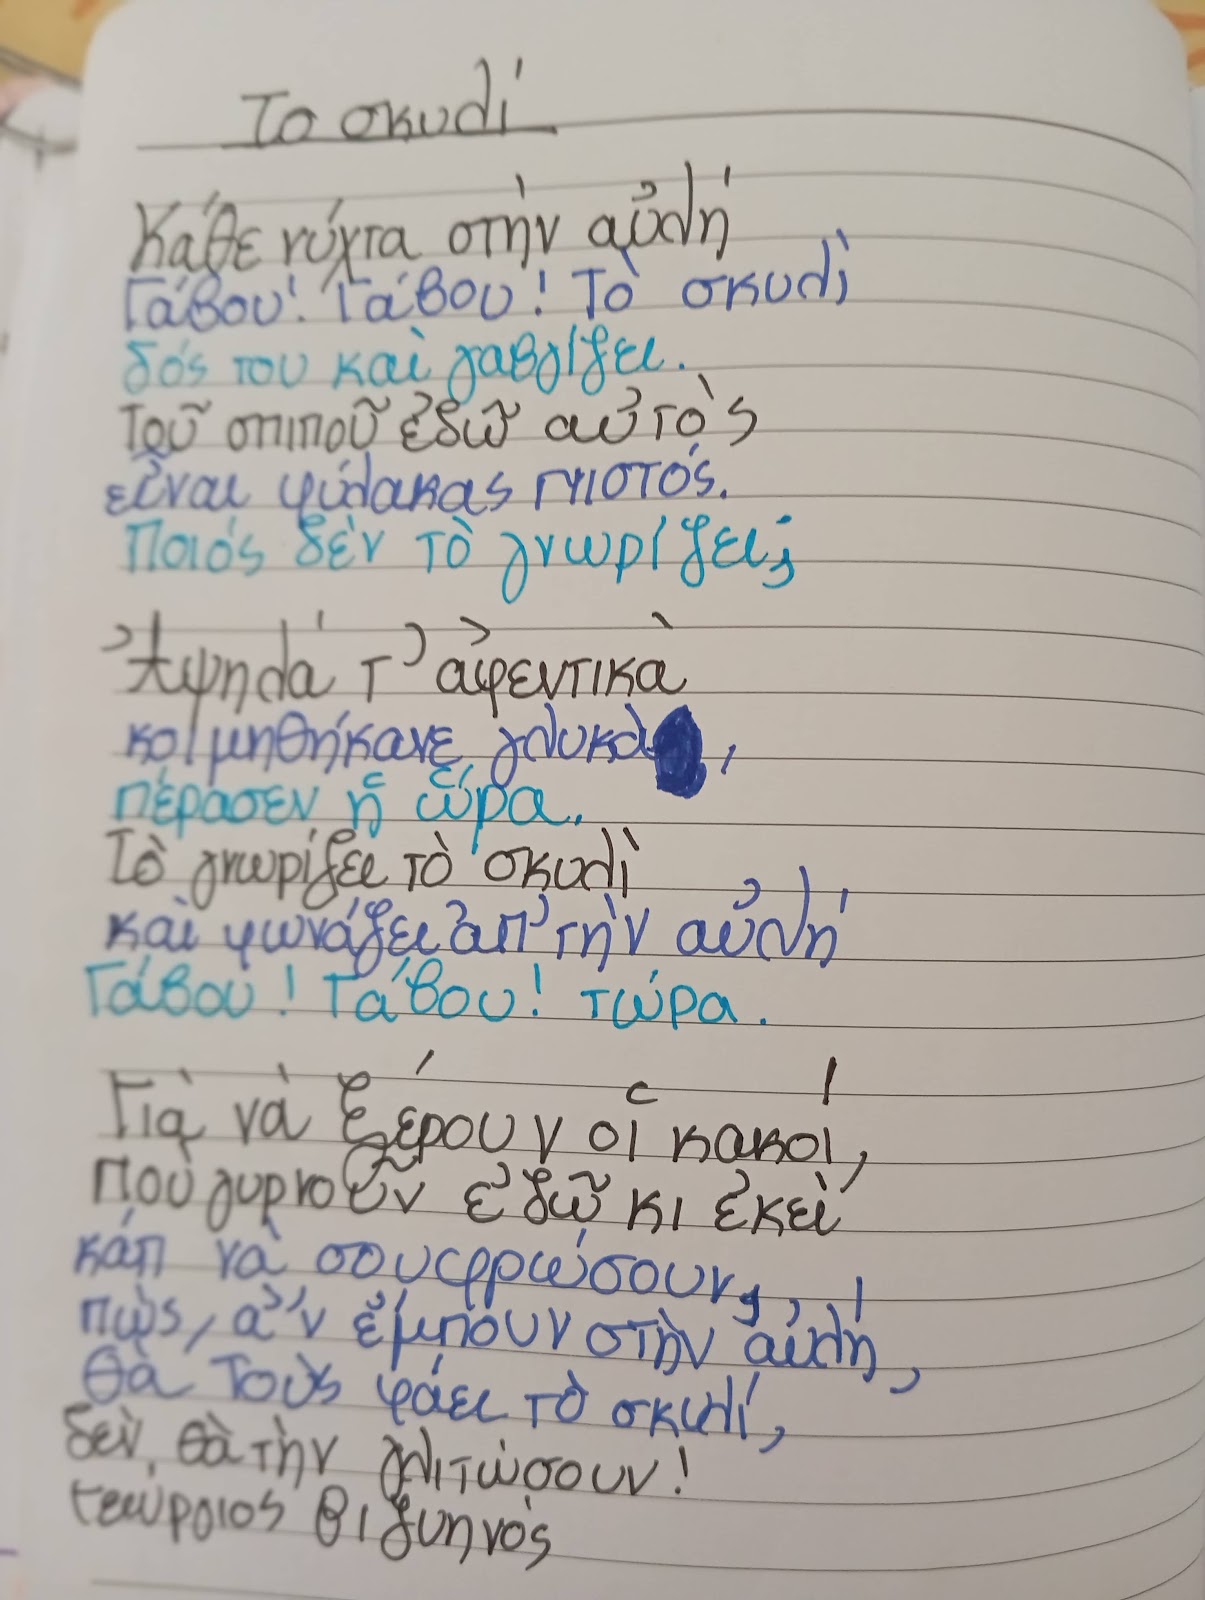 Το σκυλί
Κάθε νύχτα στὴν αὐλή
Γάβου! Γάβου! Τὸ σκυλὶ
δός του καὶ γαβγίζει.
Τοῦ σπιποῦ ἐδῶ αὐτὸς
εἶναι φύλακας πιστός.
Ποιός δὲν τὸ γνωρίζει;
Ἀψηλά τ' ἀφεντικὰ
κοιμηθήκανε γλυκὰ,
πέρασεν ἡ ὥρα.
Τὸ γνωρίζει τὸ σκυλὶ
καὶ φωνάζει ἀπ' τὴν αὐλή
Γάβου! Γάβου! τώρα.
Γιὰ νὰ ξέρουν οἱ κακοί,
ποὺ γυρνοῦν ἐδῶ κι ἐκεῖ
κάπ νὰ σουφρώσουν,
πὼς, ἂν ἔμπουν στὴν αὐλή,
θὰ τοὺς φάει τὸ σκυλί,
δὲν θὰ τὴν γλιτώσουν!
Γεώργιος Βιζυηνός